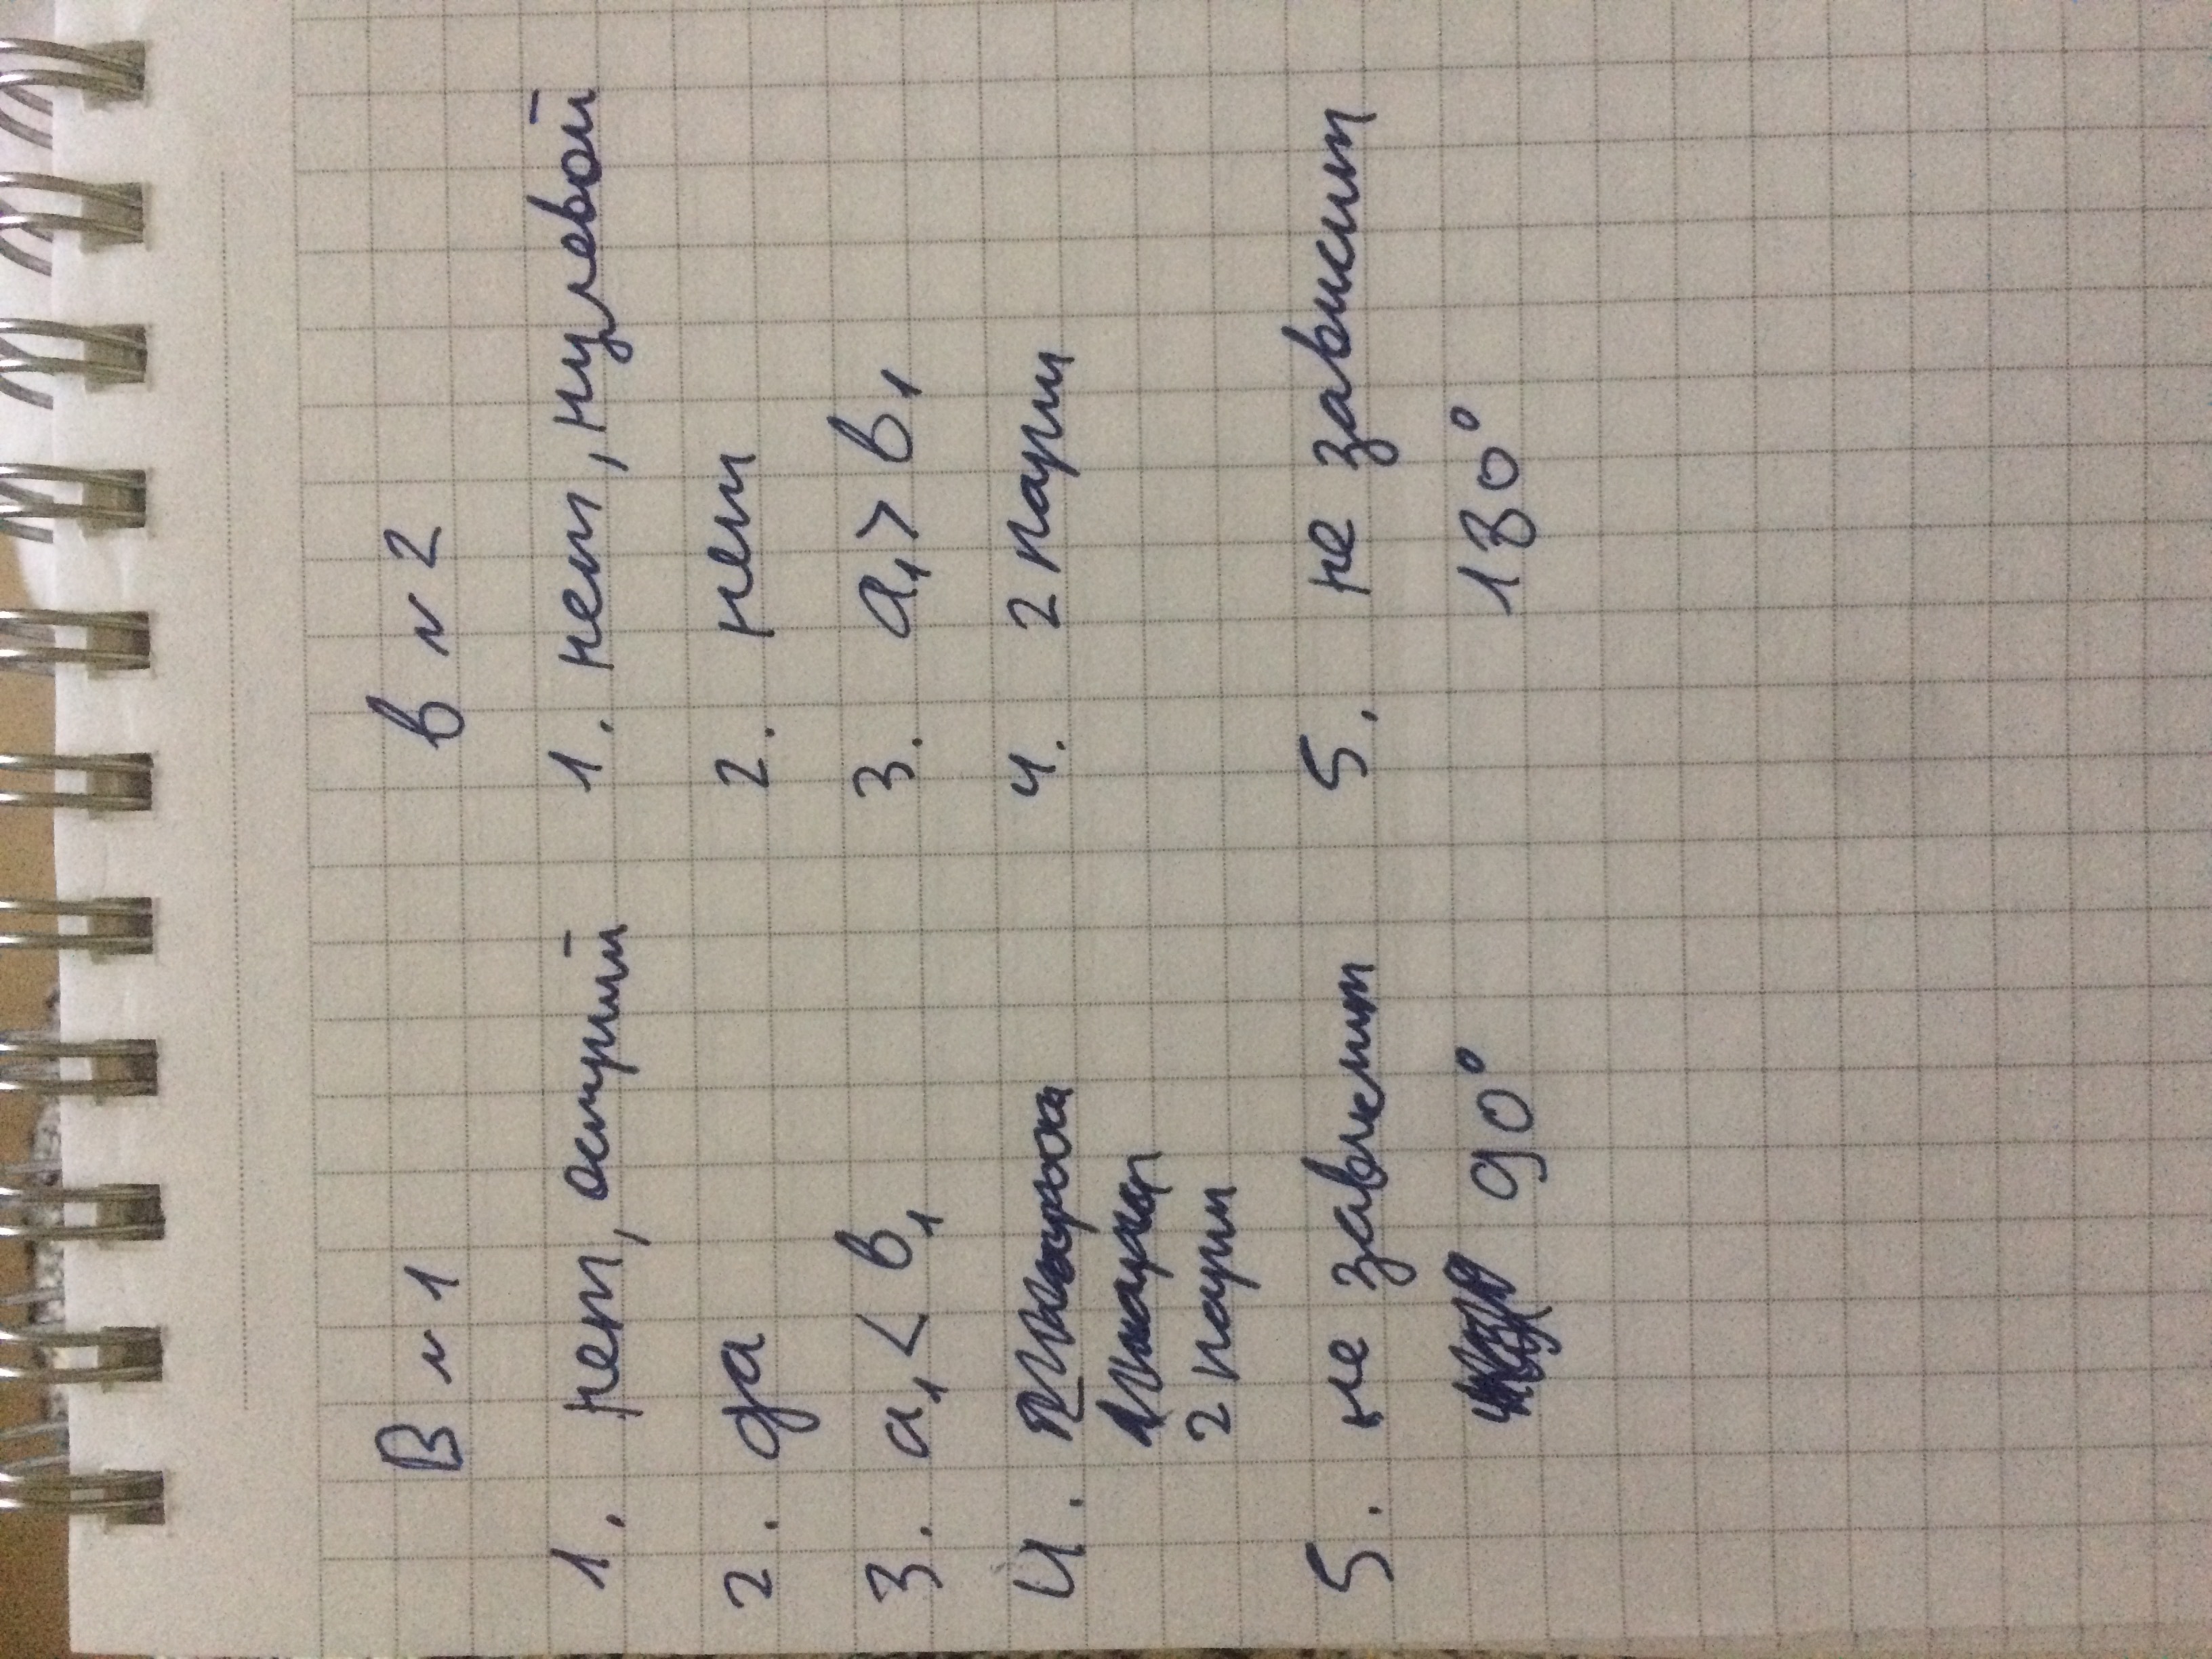 В № 1
1. нет, острый
2. да
3. a₁ < b₁
4.
2 пары
5. не зависит
90°
В № 2
1. нет, нулевой
2. нет
3. a₁ > b₁
4. 2 пары
5. не зависит
180°